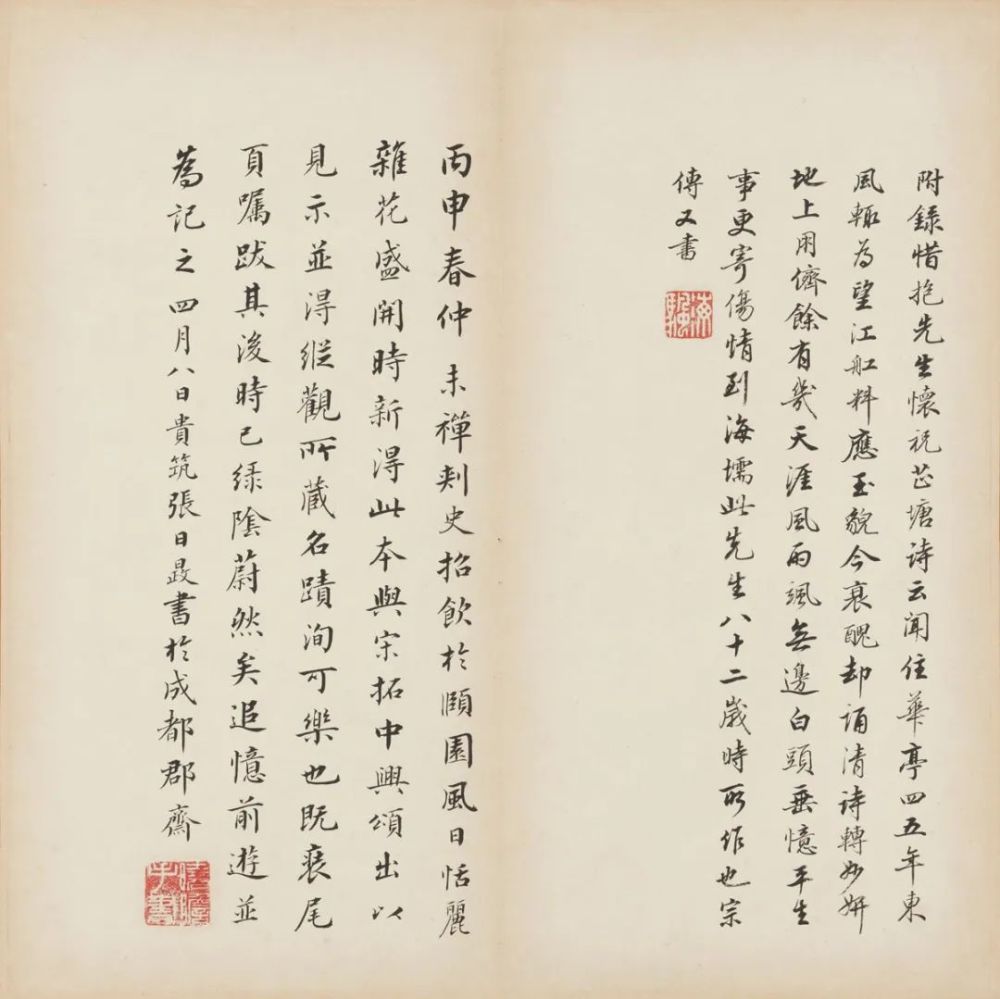 附錄惜抱先生懷祝芷塘詩云聞住華亭四五年東
風輙為望江舡料應玉貌今衰醜却誦清詩轉妙妍
地上朋儕餘有幾天涯風雨颯無邊白頭垂憶平生
事更寄傷情到海壖此先生八十二歲時所作也宗
傳又書
丙申春仲未禪刺史招飲於頤園風日恬麗
雜花盛開時新得此本與宋拓中興頌出以
見示並得縱觀所藏名蹟洵可樂也既裝尾
頁囑跋其後時已綠陰蔚然矣追憶前遊並
為記之四月八日貴筑張日晸書於成都郡齋